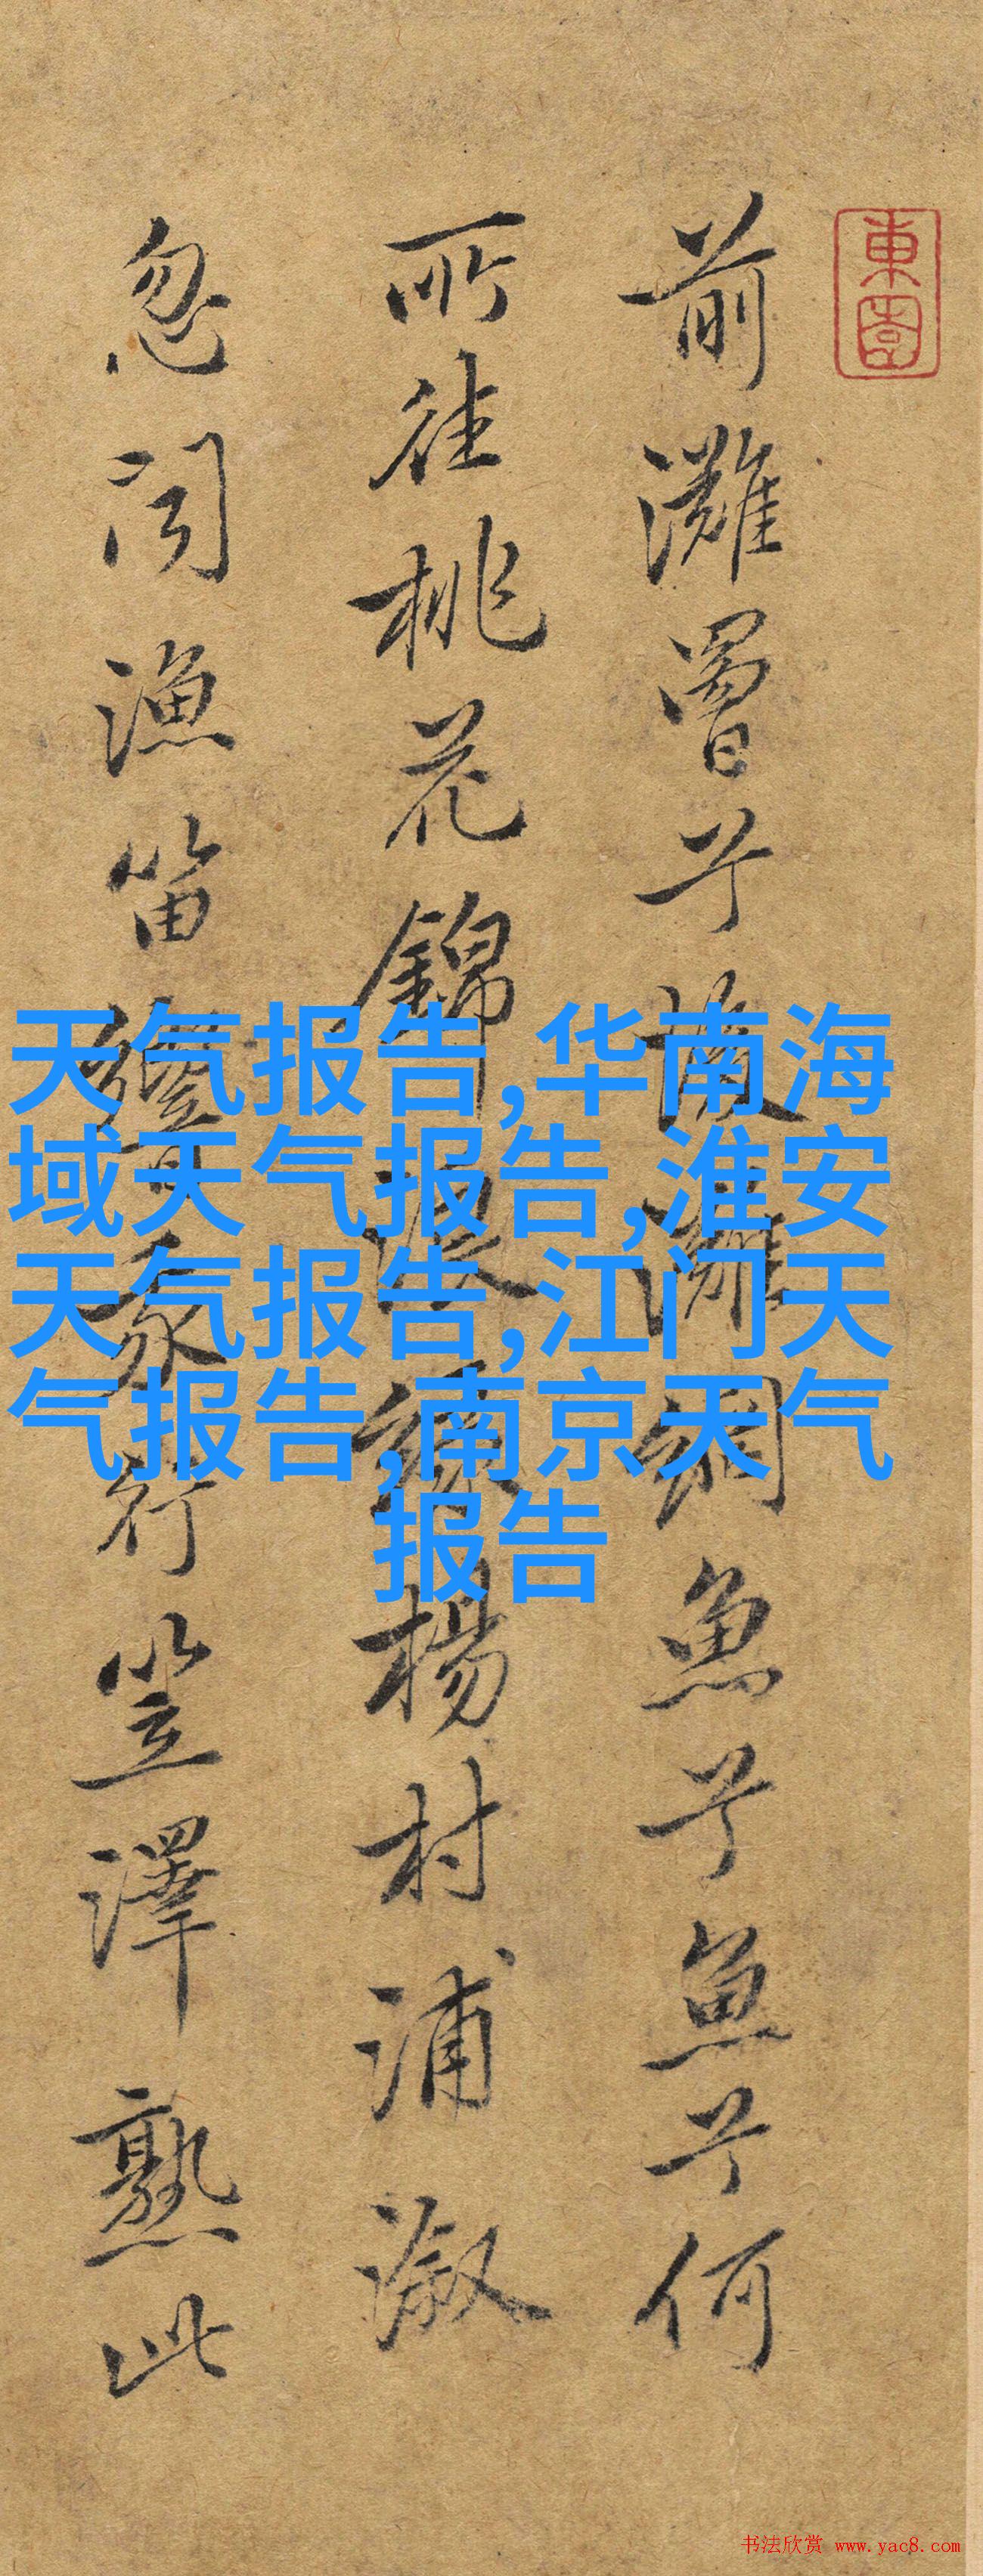 東園
前灘罾兮後灘網魚兮魚兮何
所往桃花錦浪綠楊村浦漵
忽聞漁笛響我行笠澤熟此
天气报告,华南海
域天气报告,淮安
天气报告,江门天
气报告,南京天气
报告
书法欣赏 www.yac8.com